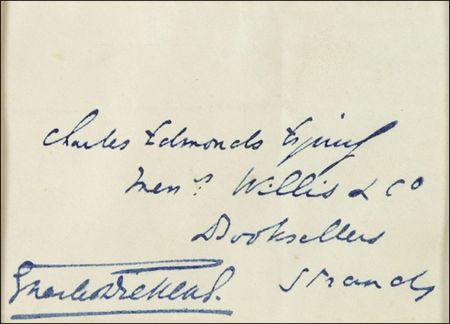 Charles Edmonds Esquire
Messrs Willis & Co
Booksellers
Strand
Charles Dickens.